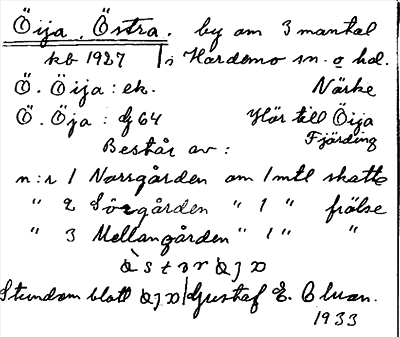 Öija, Östra. by om 3 mantal
kb 1927 | i Hardemo sn. o hd.
Ö. Öija: ek. Närke
Ö. Öja: dj 64 Hör till Öija
Fjärding
Består av:
n:r 1 Norrgården om 1 mtl skatte
" 2 Sörgården " 1 " frälse
" 3 Mellangården " 1 " "
Stundom blott | Gustaf E.
1933